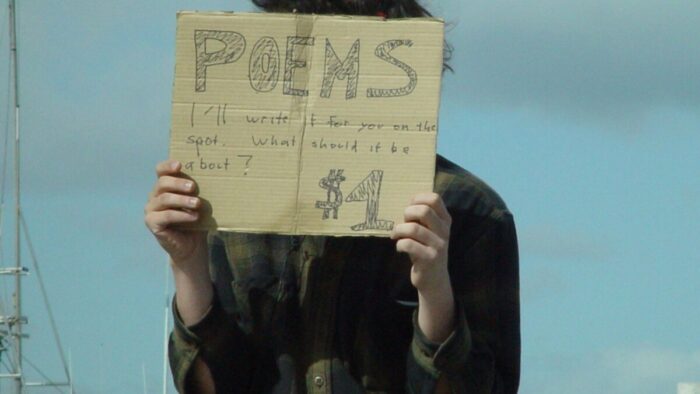 POEMS
I'll write it for you on the
spot. What should it be
about?
$1